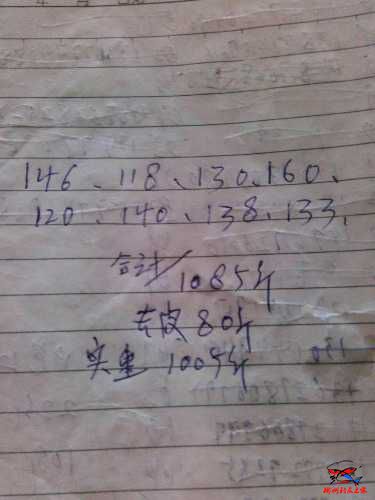 146、118、130、160、
120、140、138、133、
合计 1085斤
去皮 80斤
实重 1005斤